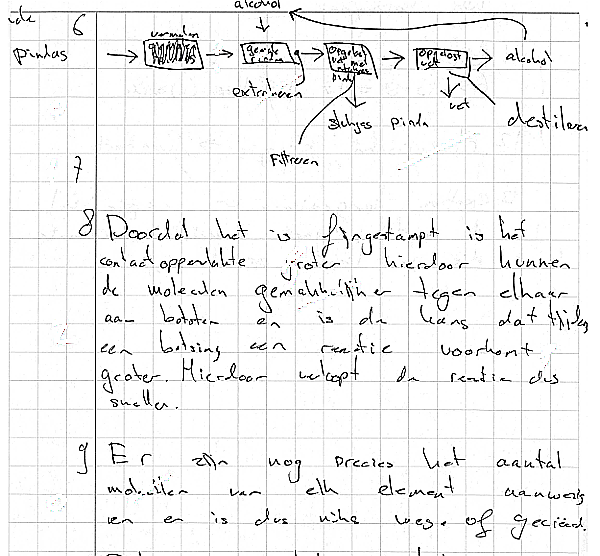 alcohol
6
pindas
vermalen
gemalen pindas
opgelost vet met stukjes pinda
opgelost vet
alcohol
extraheren
stukjes pinda
vet
destileren
Filtreren
7
8 Doordat het is fijngestampt is het
contactoppervlakte groter hierdoor kunnen
de moleculen gemakkelijker tegen elkaar
aan botsten en is de kans dat tijdens
een botsing een reactie voorkomt
groter. Hierdoor verloopt de reactie dus
sneller.
9 Er zijn nog precies het aantal
moleculen van elk element aanwezig
en er is dus niks weg of gecreëerd.